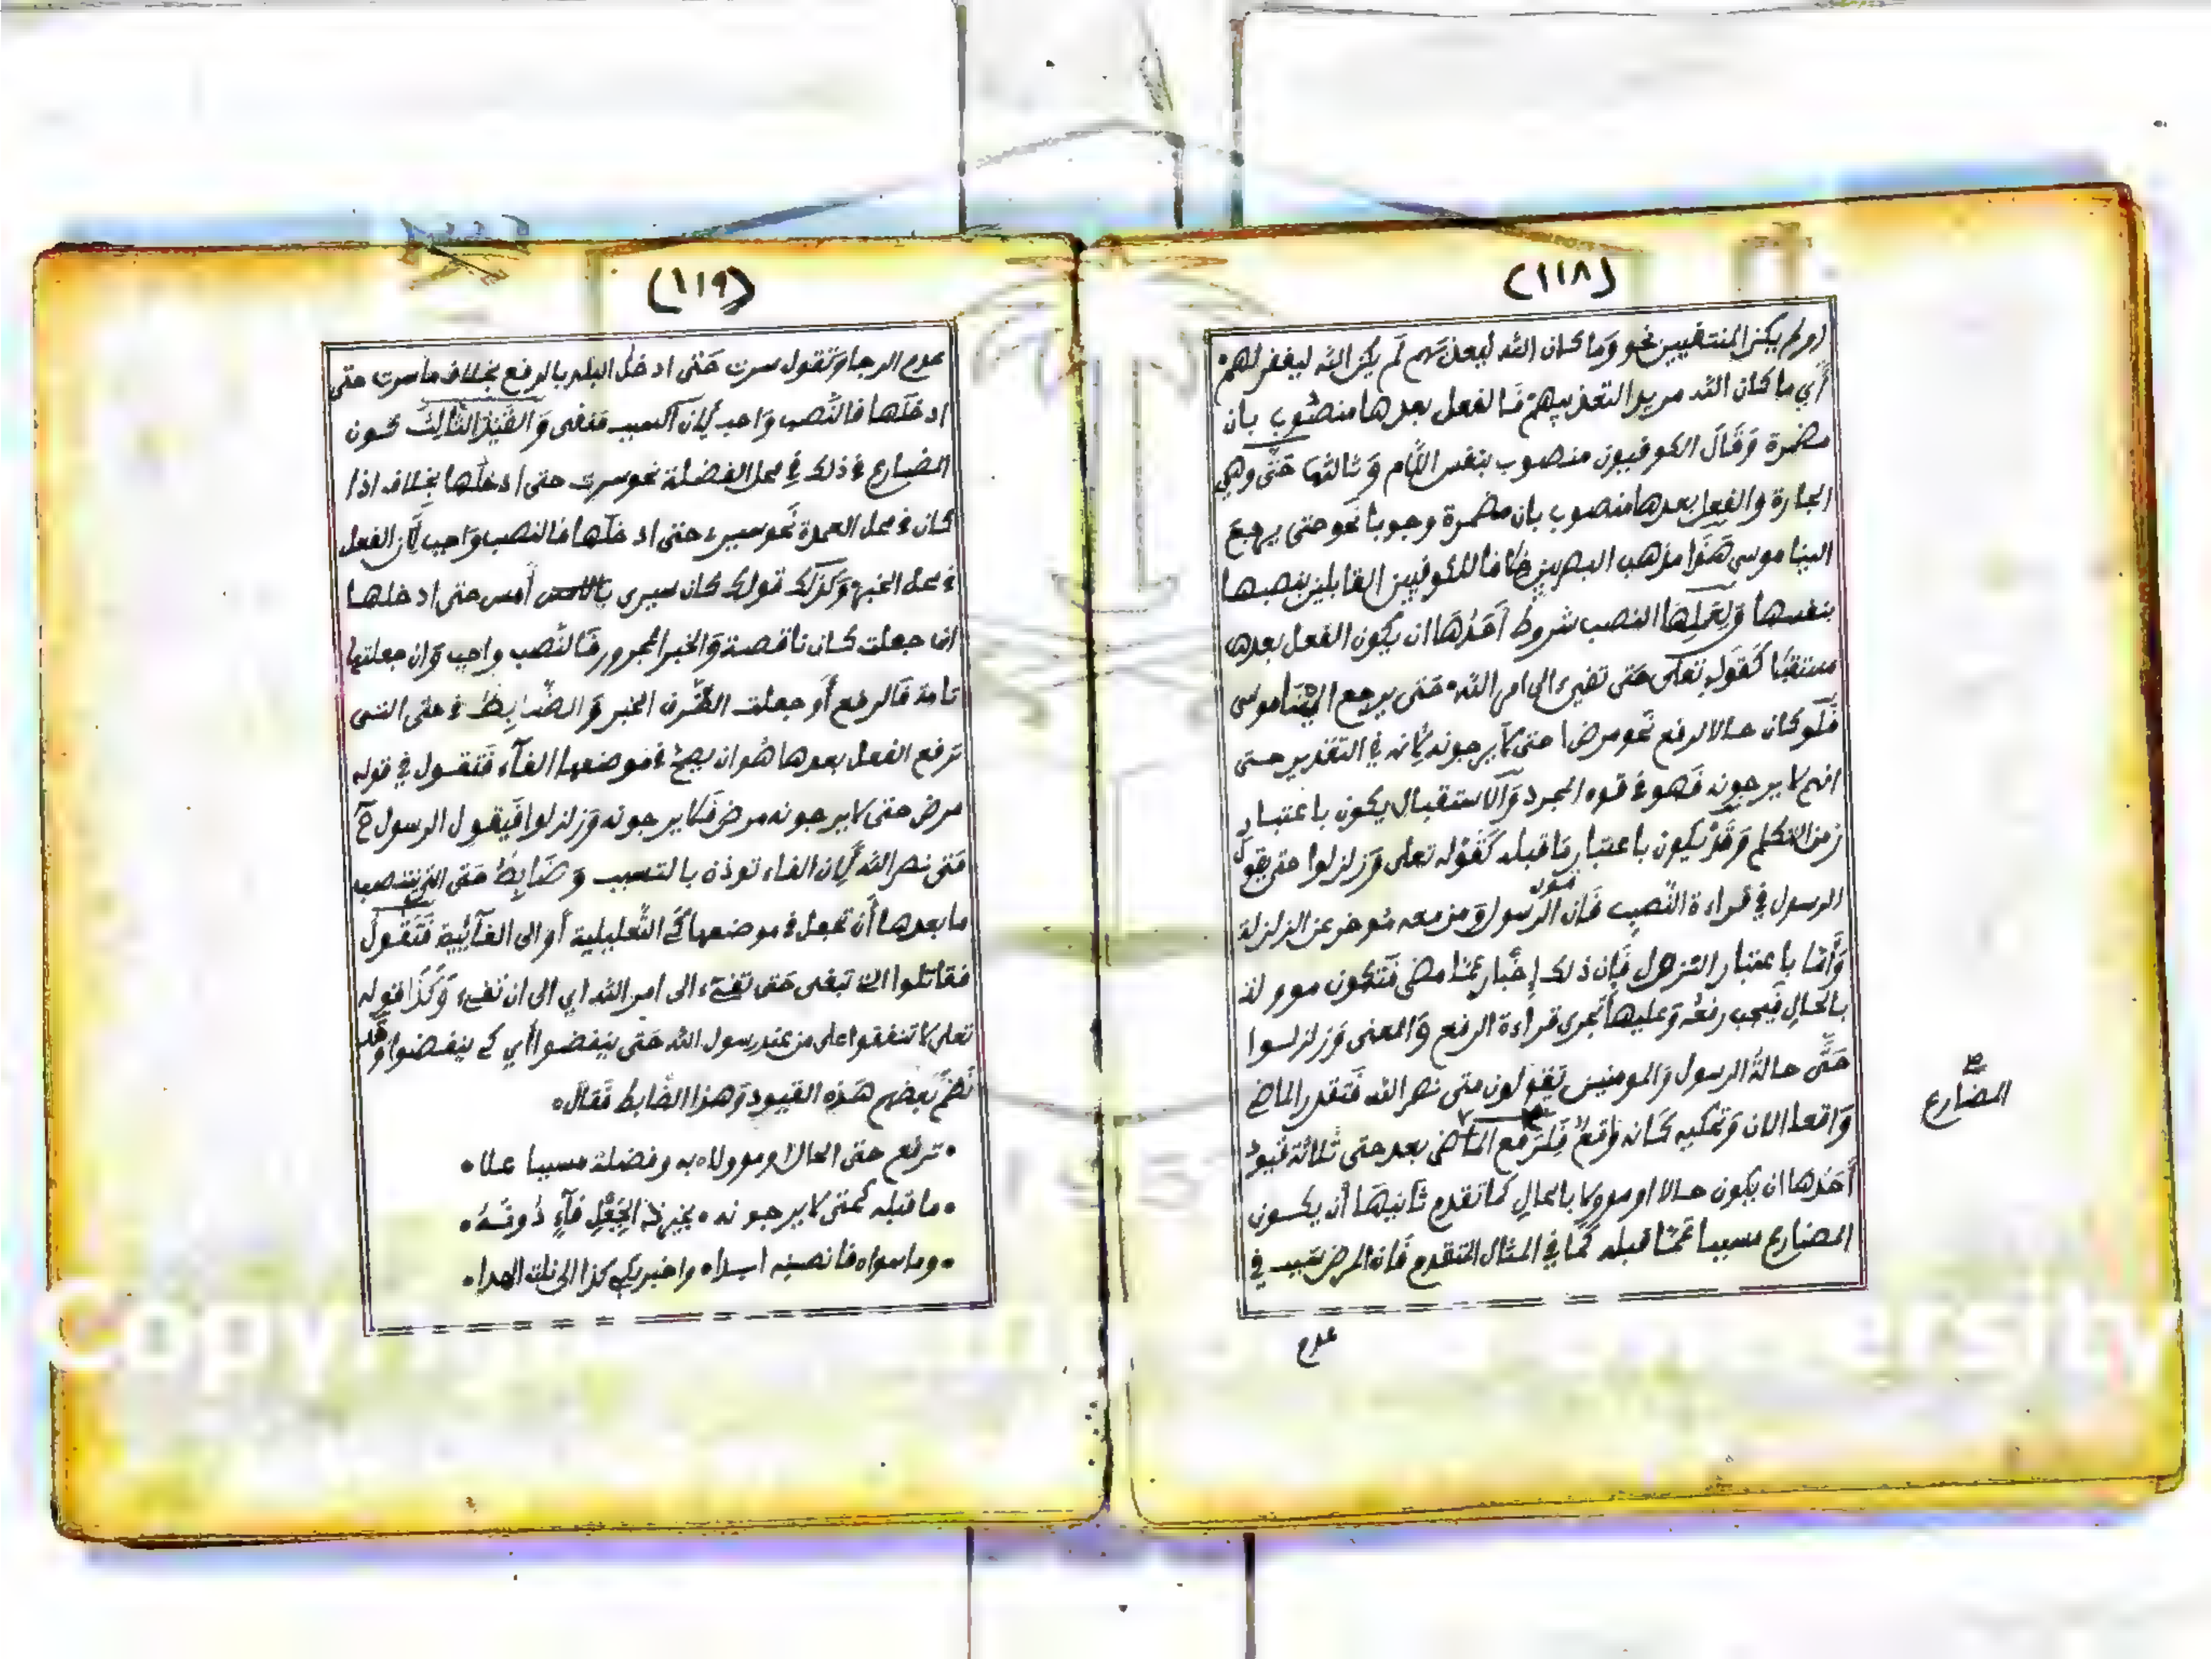 (١١٨)
او لم يكن المنتفيين نحو وَما كان الله ليعذبهم لَم يكن الله ليغفر لهم
أي ما كان الله مريدا لتعذيبهم فالفعل بعدها منصوب بان
مضمرة وَقَالَ الكوفيون منصوب بنفس اللّام وَثالثها حَتّى وهي
الجارة والفعل بعدها منصوب بان مضمرة وجوبا نحو حتى يرجع
الينا موسى هَذا مذهب البصريين خلافا للكوفيين القايلين بنصبها
بنفسها وَلِعَمَلِهَا النصب شروط أحَدُهَا ان يكون الفعل بعدها
مستقبَلا كَقَولِه تعلى حَتى تفيء الى امر الله حَتى يرجع الينا موسى
فَلو كان حالا لرفع نحو مرض حتى لا يرجونه لِأنه في التقدير حتى
انهم لا يرجونه فَهو في قوه المجرد وَالاستقبال يكون باعتبار
زمن التكلم وَقَدْ يكون باعتبار مَا قبله كَقَوْله تعلى وَزلزلوا حتى يقول
الرسول في قراءة النَّصب فَان قول الرسول وَمن معه موخر عن الزلزلة
وَأمّا باعتبار النزول فَإن ذلك إخبار عمّا مضى فَتَكون موولا
بالحال فَيجب رفعُه وَعليها تجرى قراءة الرفع وَالمعنى وَزلزلوا
حَتّى حالةُ الرسول وَالمومنين يقولون متى نصر الله فَتقدر الماضي
وَاقعا الان وَتحكيه كَانه وَاقعٌ فَلِرَفع بعد حتى ثلاثة قيود
أحَدُها ان يكون حالا او موولا بالحالِ كما تقدم ثَانيهَا أن يكون
المضارع مسببا عَمّا قبله كَما في المثال المتقدم فَان المرض سَبب في
المضارع
عدم
(١١٩)
عدم الرجا وَتَقول سرت حَتّى ادخل البلد بالرفع بخلاف ما سرت حتى
ادخلَها فالنَّصب وَاجب لِأن السبب منفى وَالقَيْدُ الثَّالِثُ كون
المضارع في ذلك في محل الفضلة نحو سرت حتى ادخلُها بخلاف اذا
كان في محل العمدة نحو سيرى حتى ادخلَها فالنصب وَاجب لِأن الفعل
في محل الخبر وَكَذلك قولك كان سيرى أمس حتى ادخلها
ان جعلت كان ناقصة وَالخبر المجرور فَالنَّصب واجب وَان جعلتها
تامة فَالرفع أو جعلت الظَّرف الخبر وَالضَّابِطُ في حتى التى
ترفع الفعل بعدها هُو ان يصح في موضعها الفآء فَتقول في قوله
مرض حتى لا يرجونه مرض فَلا يرجونه وَزلزلوا فَيقول الرسول
مَتى نصر الله لِأن الفاء توذن بالتسبب وَضَابِطُ حَتى التى ينتصب
ما بعدها أن تجعل في موضعها كَي التَّعليلية أو الى الغآئِيّة فَتَقُولُ
فقاتلوا التى تبغى حَتى تفىء الى امر الله اي الى ان تفىء وَكَذا قوله
تعلى لا تنفقوا على من عند رسول الله حَتى ينفضوا أي كَي ينفضوا وَقَد
نَظمَ بَعضهم هَذِه القيود وَهذا الضَّابط فَقال
ترفع حتى الحال او موولا به وفضلة مسببا علا
ما قبله كحتى لا يرجونه
وما سواه فانصبنه ابدا